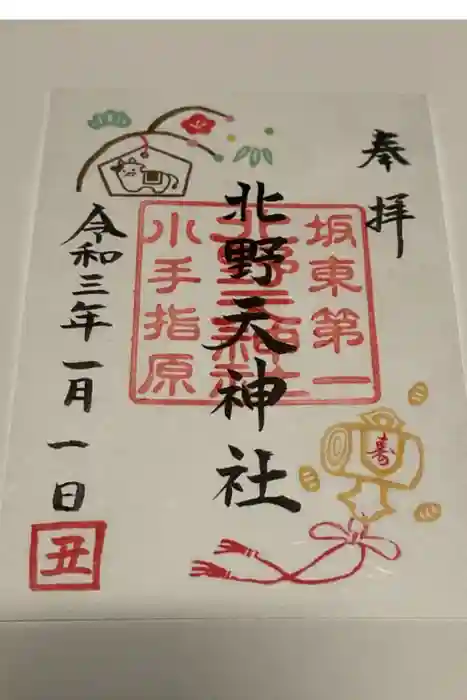 奉拝
坂東第一
北野天神社
小手指原
北野天神社
令和三年一月一日
丑
寿